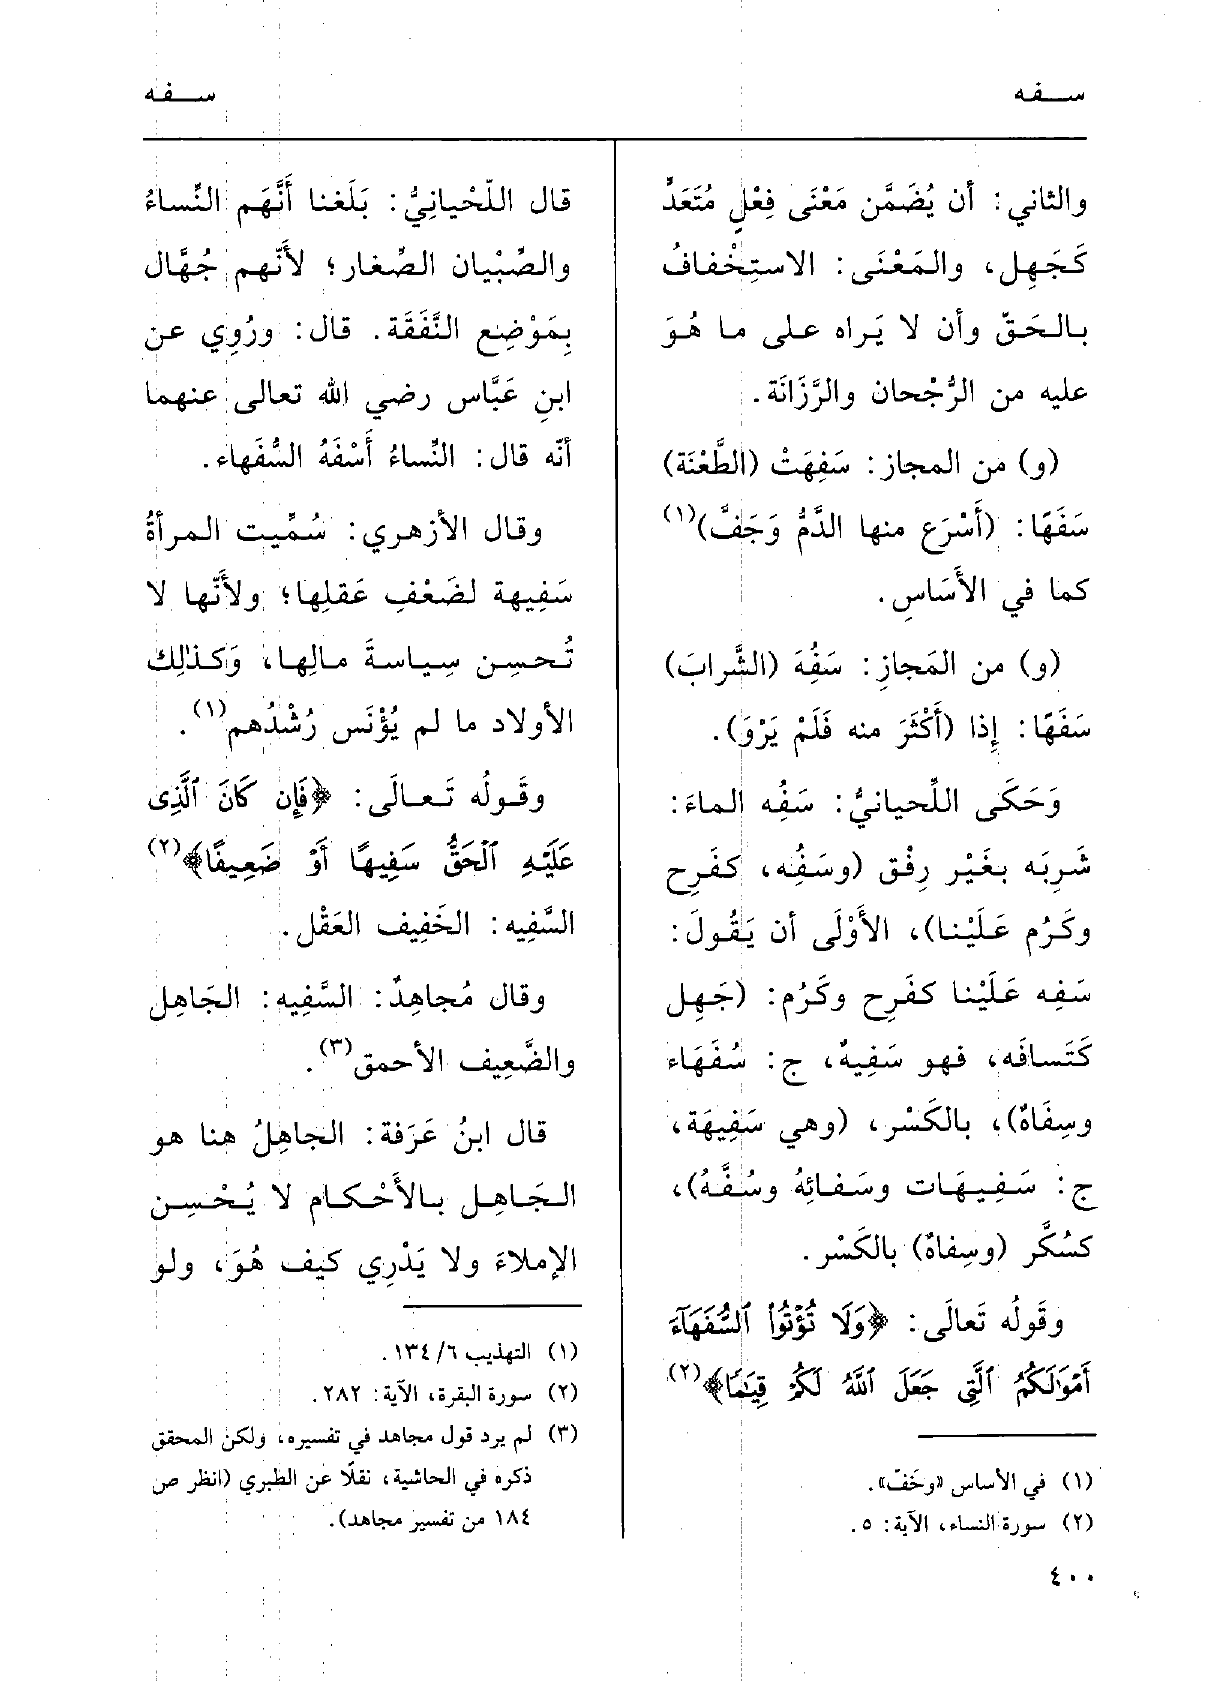 سفه
سفه
والثاني: أن يُضَمَّن مَعْنَى فِعْلٍ مُتَعَدٍّ
كَجَهِل، والمَعْنَى: الاستِخْفافُ
بالحَقّ وأن لا يَراه على ما هُوَ
عليه من الرُّجْحان والرَّزَانَة.
(و) من المجاز: سَفِهَتْ (الطَّعْنَة)
سَفَهًا: (أَسْرَع منها الدَّمُ وَجَفَّ)(١)
كما في الأَسَاسِ.
(و) من المَجازِ: سَفُهَ (الشَّرابَ)
سَفَهًا: إِذا (أَكْثَرَ منه فَلَمْ يَرْوَ).
وَحَكَى اللِّحيانيُّ: سَفُه الماءَ:
شَرِبَه بغَيْر رِفْق (وسَفُِه، كفَرِح
وكَرُم عَلَيْنا)، الأَوْلَى أن يَقُولَ:
سَفِه عَلَيْنا كفَرِح وكَرُم: (جَهِل
كَتَسافَه، فهو سَفِيهٌ، ج: سُفَهَاء
وسِفَاهٌ)، بالكَسْر، (وهي سَفِيهَة،
ج: سَفِيهَات وسَفائِهُ وسُفَّهٌ)،
كسُكَّر (وسِفاهٌ) بالكَسْر.
وقَولُه تَعالَى: ﴿وَلَا تُؤْتُوا۟ ٱلسُّفَهَآءَ
أَمْوَٰلَكُمُ ٱلَّتِى جَعَلَ ٱللَّهُ لَكُمْ قِيَٰمًا﴾(٢)
(١) في الأساس «وخَفّ».
(٢) سورة النساء، الآية: ٥.
قال اللّحْيانِيُّ: بَلَغنا أَنَّهَم النِّساءُ
والصِّبْيان الصِّغار؛ لأَنّهم جُهَّال
بِمَوْضِع النَّفَقَة. قال: ورُوِي عن
ابنِ عَبَّاس رضي الله تعالى عنهما
أنّه قال: النِّساءُ أَسْفَهُ السُّفَهاء.
وقال الأزهري: سُمِّيت المرأةُ
سَفِيهة لضَعْفِ عَقلِها؛ ولأَنّها لا
تُحسِن سِياسةَ مالِها، وَكذٰلِك
الأولاد ما لم يُؤْنَس رُشْدُهم(١).
وقَولُه تَعالَى: ﴿فَإِن كَانَ ٱلَّذِى
عَلَيْهِ ٱلْحَقُّ سَفِيهًا أَوْ ضَعِيفًا﴾(٢)
السَّفِيه: الخَفِيف العَقْل.
وقال مُجاهِدٌ: السَّفِيه: الجَاهِل
والضَّعِيف الأحمق(٣).
قال ابنُ عَرَفة: الجاهِلُ هنا هو
الجَاهِل بالأَحْكام لا يُحْسِن
الإملاءَ ولا يَدْرِي كيف هُوَ، ولو
(١) التهذيب ٦/ ١٣٤.
(٢) سورة البقرة، الآية: ٢٨٢.
(٣) لم يرد قول مجاهد في تفسيره، ولكن المحقق
ذكره في الحاشية، نقلًا عن الطبري (انظر ص
١٨٤ من تفسير مجاهد).
٤٠٠